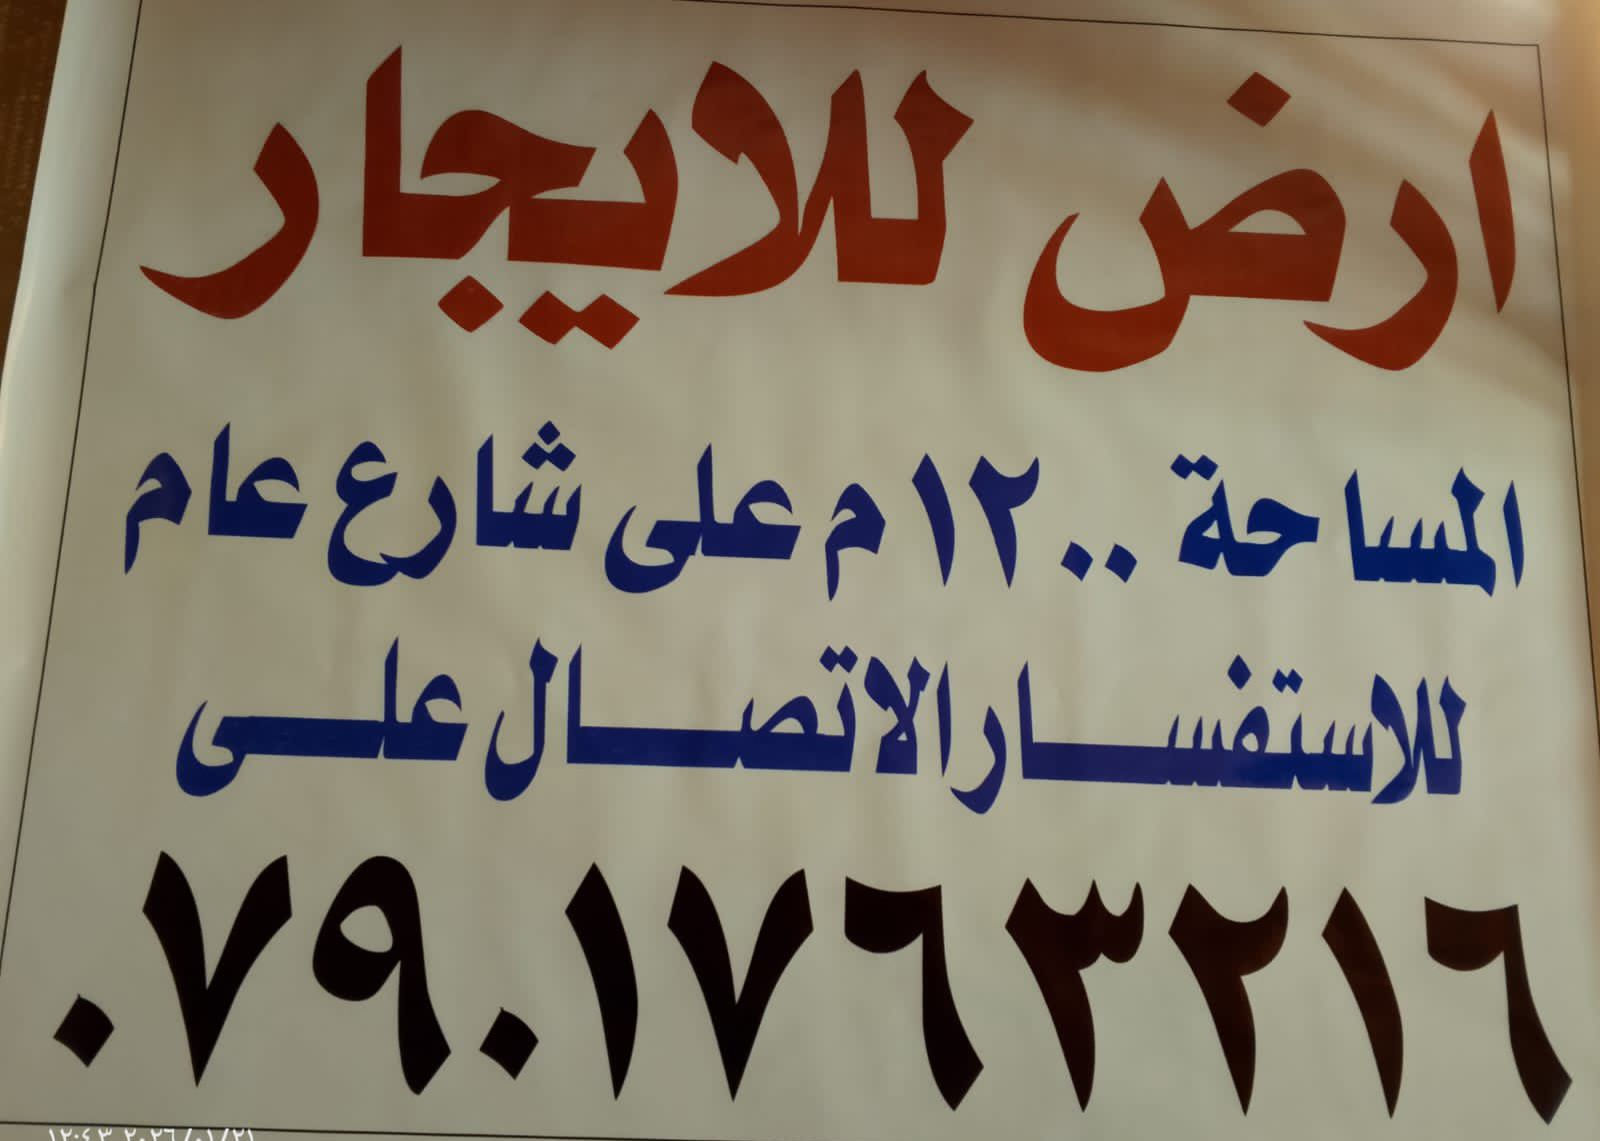 ارض للايجار
المساحة ١٢٠٠م على شارع عام
للاستفسار الاتصال على
٠٧٩٠١٧٦٣٢١٦